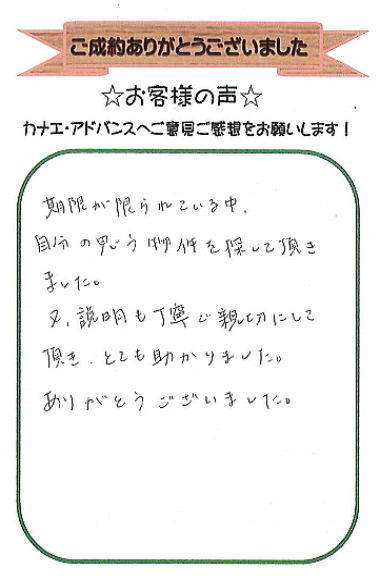 ご成約ありがとうございました
☆お客様の声☆
カナエ・アドバンスへご意見ご感想をお願いします！
期限が限られている中、
自分の思う物件を探して頂き
ました。
又、説明も丁寧で親切にして
頂き、とても助かりました。
ありがとうございました。